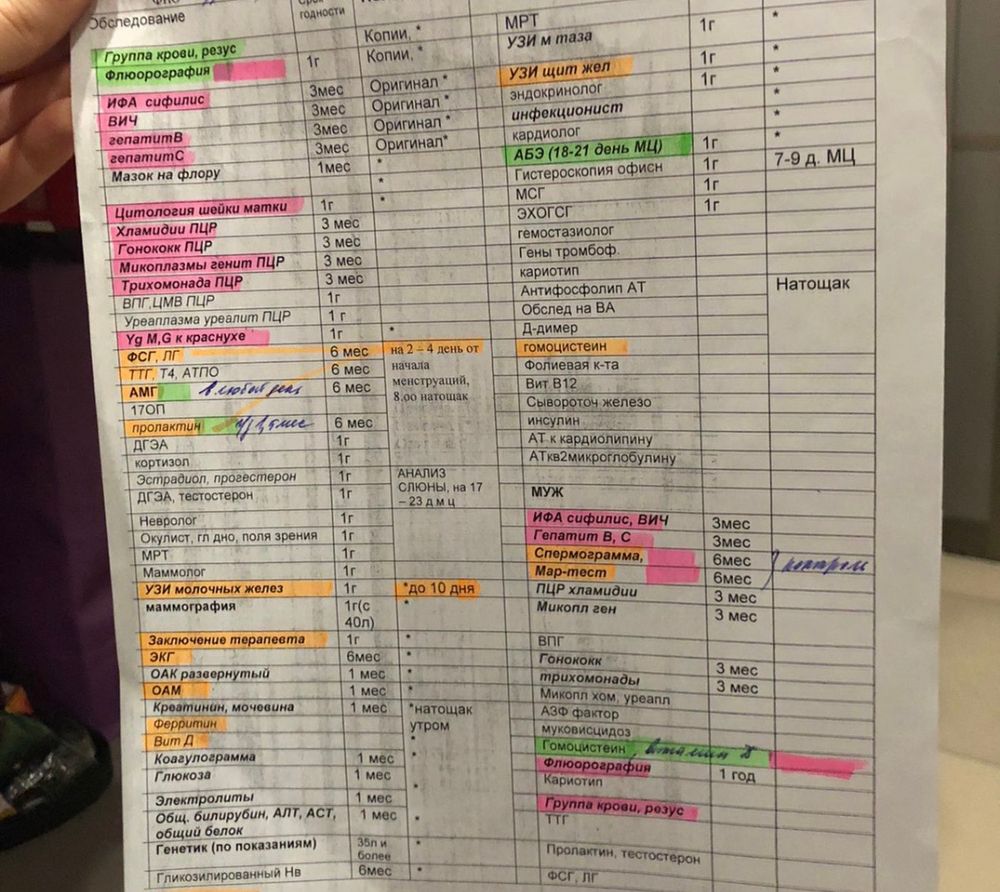 Обследование
годности
Группа крови, резус
Копии, *
Флюорография 1г Копии, *
ИФА сифилис 3мес Оригинал *
ВИЧ 3мес Оригинал *
гепатитВ 3мес Оригинал *
гепатитС 3мес Оригинал*
Мазок на флору 1мес *
*
Цитология шейки матки 1г *
Хламидии ПЦР 3 мес
Гонококк ПЦР 3 мес
Микоплазмы генит ПЦР 3 мес
Трихомонада ПЦР 3 мес
ВПГ,ЦМВ ПЦР 1г
Уреаплазма уреалит ПЦР 1 г
Yg M,G к краснухе 1г *
ФСГ, ЛГ 6 мес на 2 – 4 день от
ТТГ, Т4, АТПО 6 мес начала
АМГ в любой день 6 мес менструаций,
17ОП 8.оо натощак
пролактин 6 мес
ДГЭА 1г
кортизол 1г
Эстрадиол, прогестерон 1г АНАЛИЗ
ДГЭА, тестостерон 1г СЛЮНЫ, на 17
– 23 д м ц
Невролог 1г
Окулист, гл дно, поля зрения 1г
МРТ 1г
Маммолог 1г
УЗИ молочных желез 1г *до 10 дня
маммография 1г(с *
40л)
Заключение терапевта 1г *
ЭКГ 6мес *
ОАК развернутый 1 мес *
ОАМ 1 мес *
Креатинин, мочевина 1 мес *натощак
Ферритин утром
Вит Д *
Коагулограмма 1 мес *
Глюкоза 1 мес
*
Электролиты 1 мес
Общ. билирубин, АЛТ, АСТ, 1 мес *
общий белок
Генетик (по показаниям) 35л и *
более
Гликозилированный Нв 6мес *
МРТ 1г *
УЗИ м таза
УЗИ щит жел 1г *
эндокринолог 1г *
инфекционист *
кардиолог *
АБЭ (18-21 день МЦ) 1г
Гистероскопия офисн 1г 7-9 д. МЦ
МСГ 1г
ЭХОГСГ 1г
гемостазиолог
Гены тромбоф.
кариотип
Антифосфолип АТ Натощак
Обслед на ВА
Д-димер
гомоцистеин
Фолиевая к-та
Вит В12
Сывороточ железо
инсулин
АТ к кардиолипину
АТкв2микроглобулину
МУЖ
ИФА сифилис, ВИЧ 3мес
Гепатит В, С 3мес
Спермограмма, 6мес
Мар-тест 6мес
ПЦР хламидии 3 мес
Микопл ген 3 мес
ВПГ
Гонококк 3 мес
трихомонады 3 мес
Микопл хом, уреапл
АЗФ фактор
муковисцидоз
Гомоцистеин, витамин D
Флюорография 1 год
Кариотип
Группа крови, резус
ТТГ
Пролактин, тестостерон
ФСГ, ЛГ